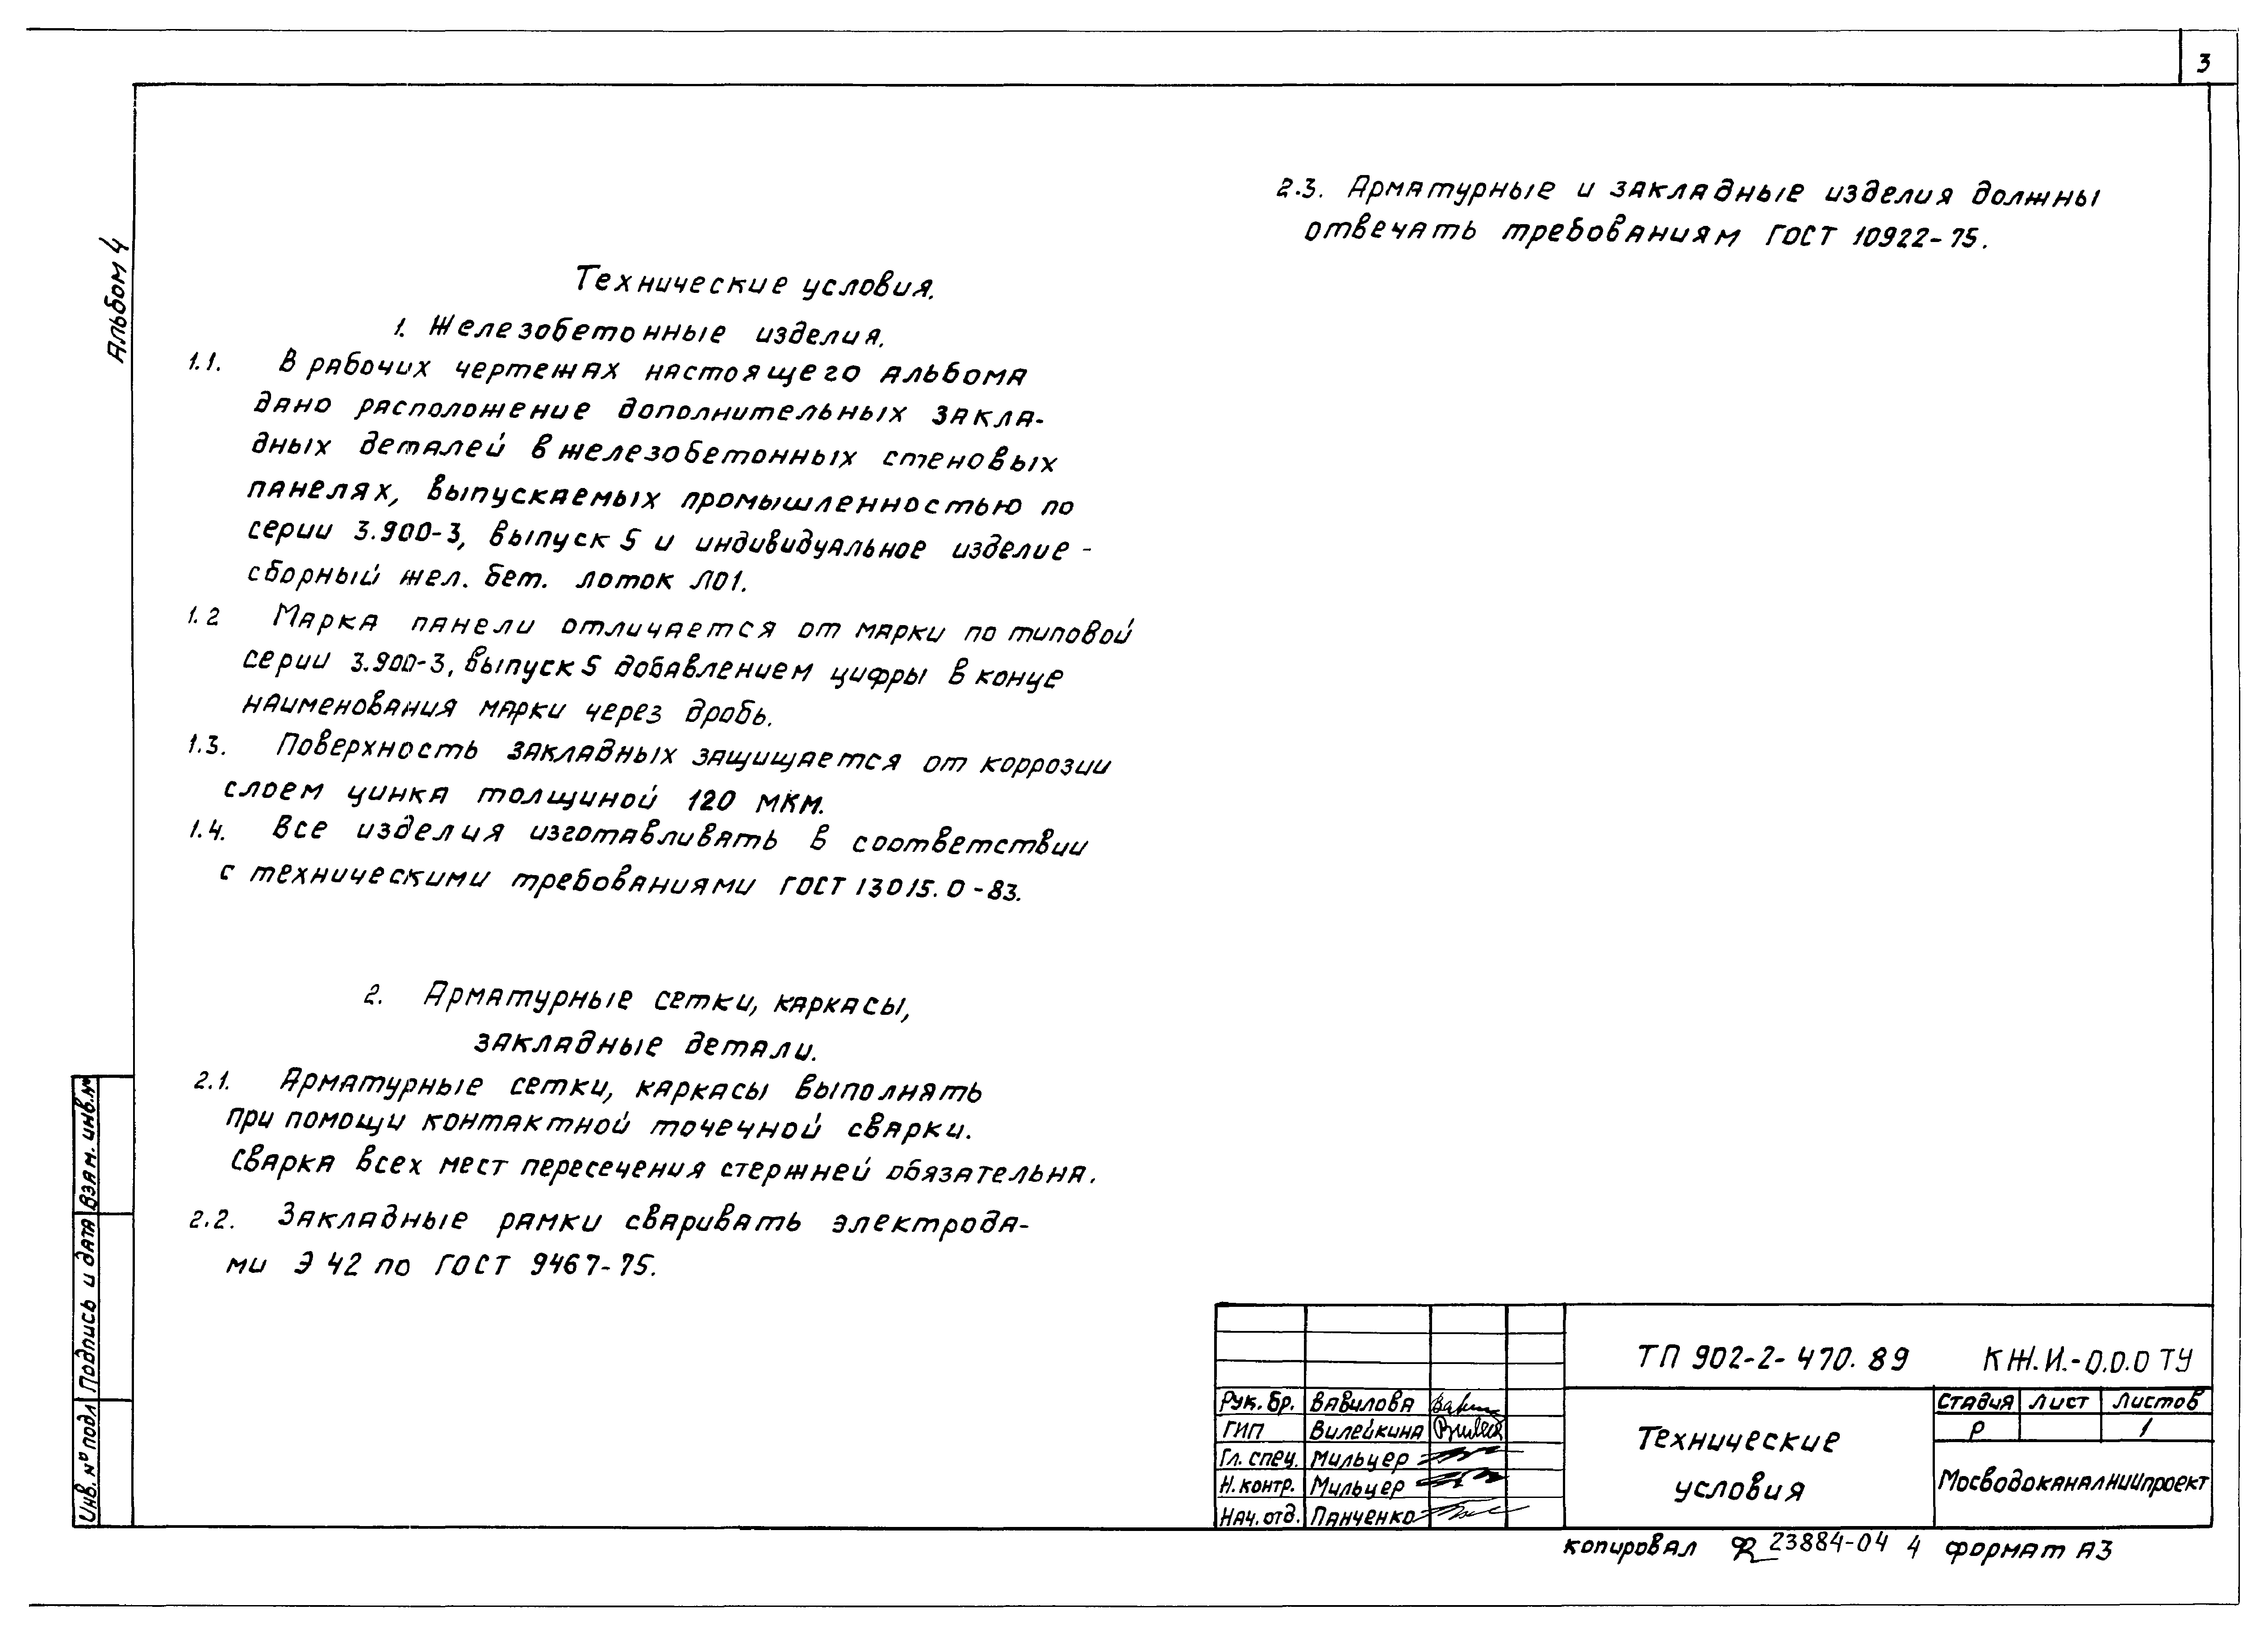 3
Альбом 4
Технические условия.
1. Железобетонные изделия.
1.1. В рабочих чертежах настоящего альбома
дано расположение дополнительных закла-
дных деталей в железобетонных стеновых
панелях, выпускаемых промышленностью по
серии 3.900-3, выпуск 5 и индивидуальное изделие -
сборный жел. бет. лоток Л01.
1.2 Марка панели отличается от марки по типовой
серии 3.900-3, выпуск 5 добавлением цифры в конце
наименования марки через дробь.
1.3. Поверхность закладных защищается от коррозии
слоем цинка толщиной 120 мкм.
1.4. Все изделия изготавливать в соответствии
с техническими требованиями ГОСТ 13015.0-83.
2. Арматурные сетки, каркасы,
закладные детали.
2.1. Арматурные сетки, каркасы выполнять
при помощи контактной точечной сварки.
Сварка всех мест пересечения стержней обязательна.
2.2. Закладные рамки сваривать электрода-
ми Э 42 по ГОСТ 9467-75.
2.3. Арматурные и закладные изделия должны
отвечать требованиям ГОСТ 10922-75.
Взам. инв. №
Подпись и дата
Инв. № подл
ТП 902-2-470.89 КЖ.И.-0.0.0 ТУ
Рук. бр. Вавилова
ГИП Вилейкина
Гл. спец. Мильцер
Н. контр. Мильцер
Нач. отд. Панченко
Технические
условия
Стадия Лист Листов
Р 1
Мосводоканалниипроект
копировал 23884-04 4 формат А3